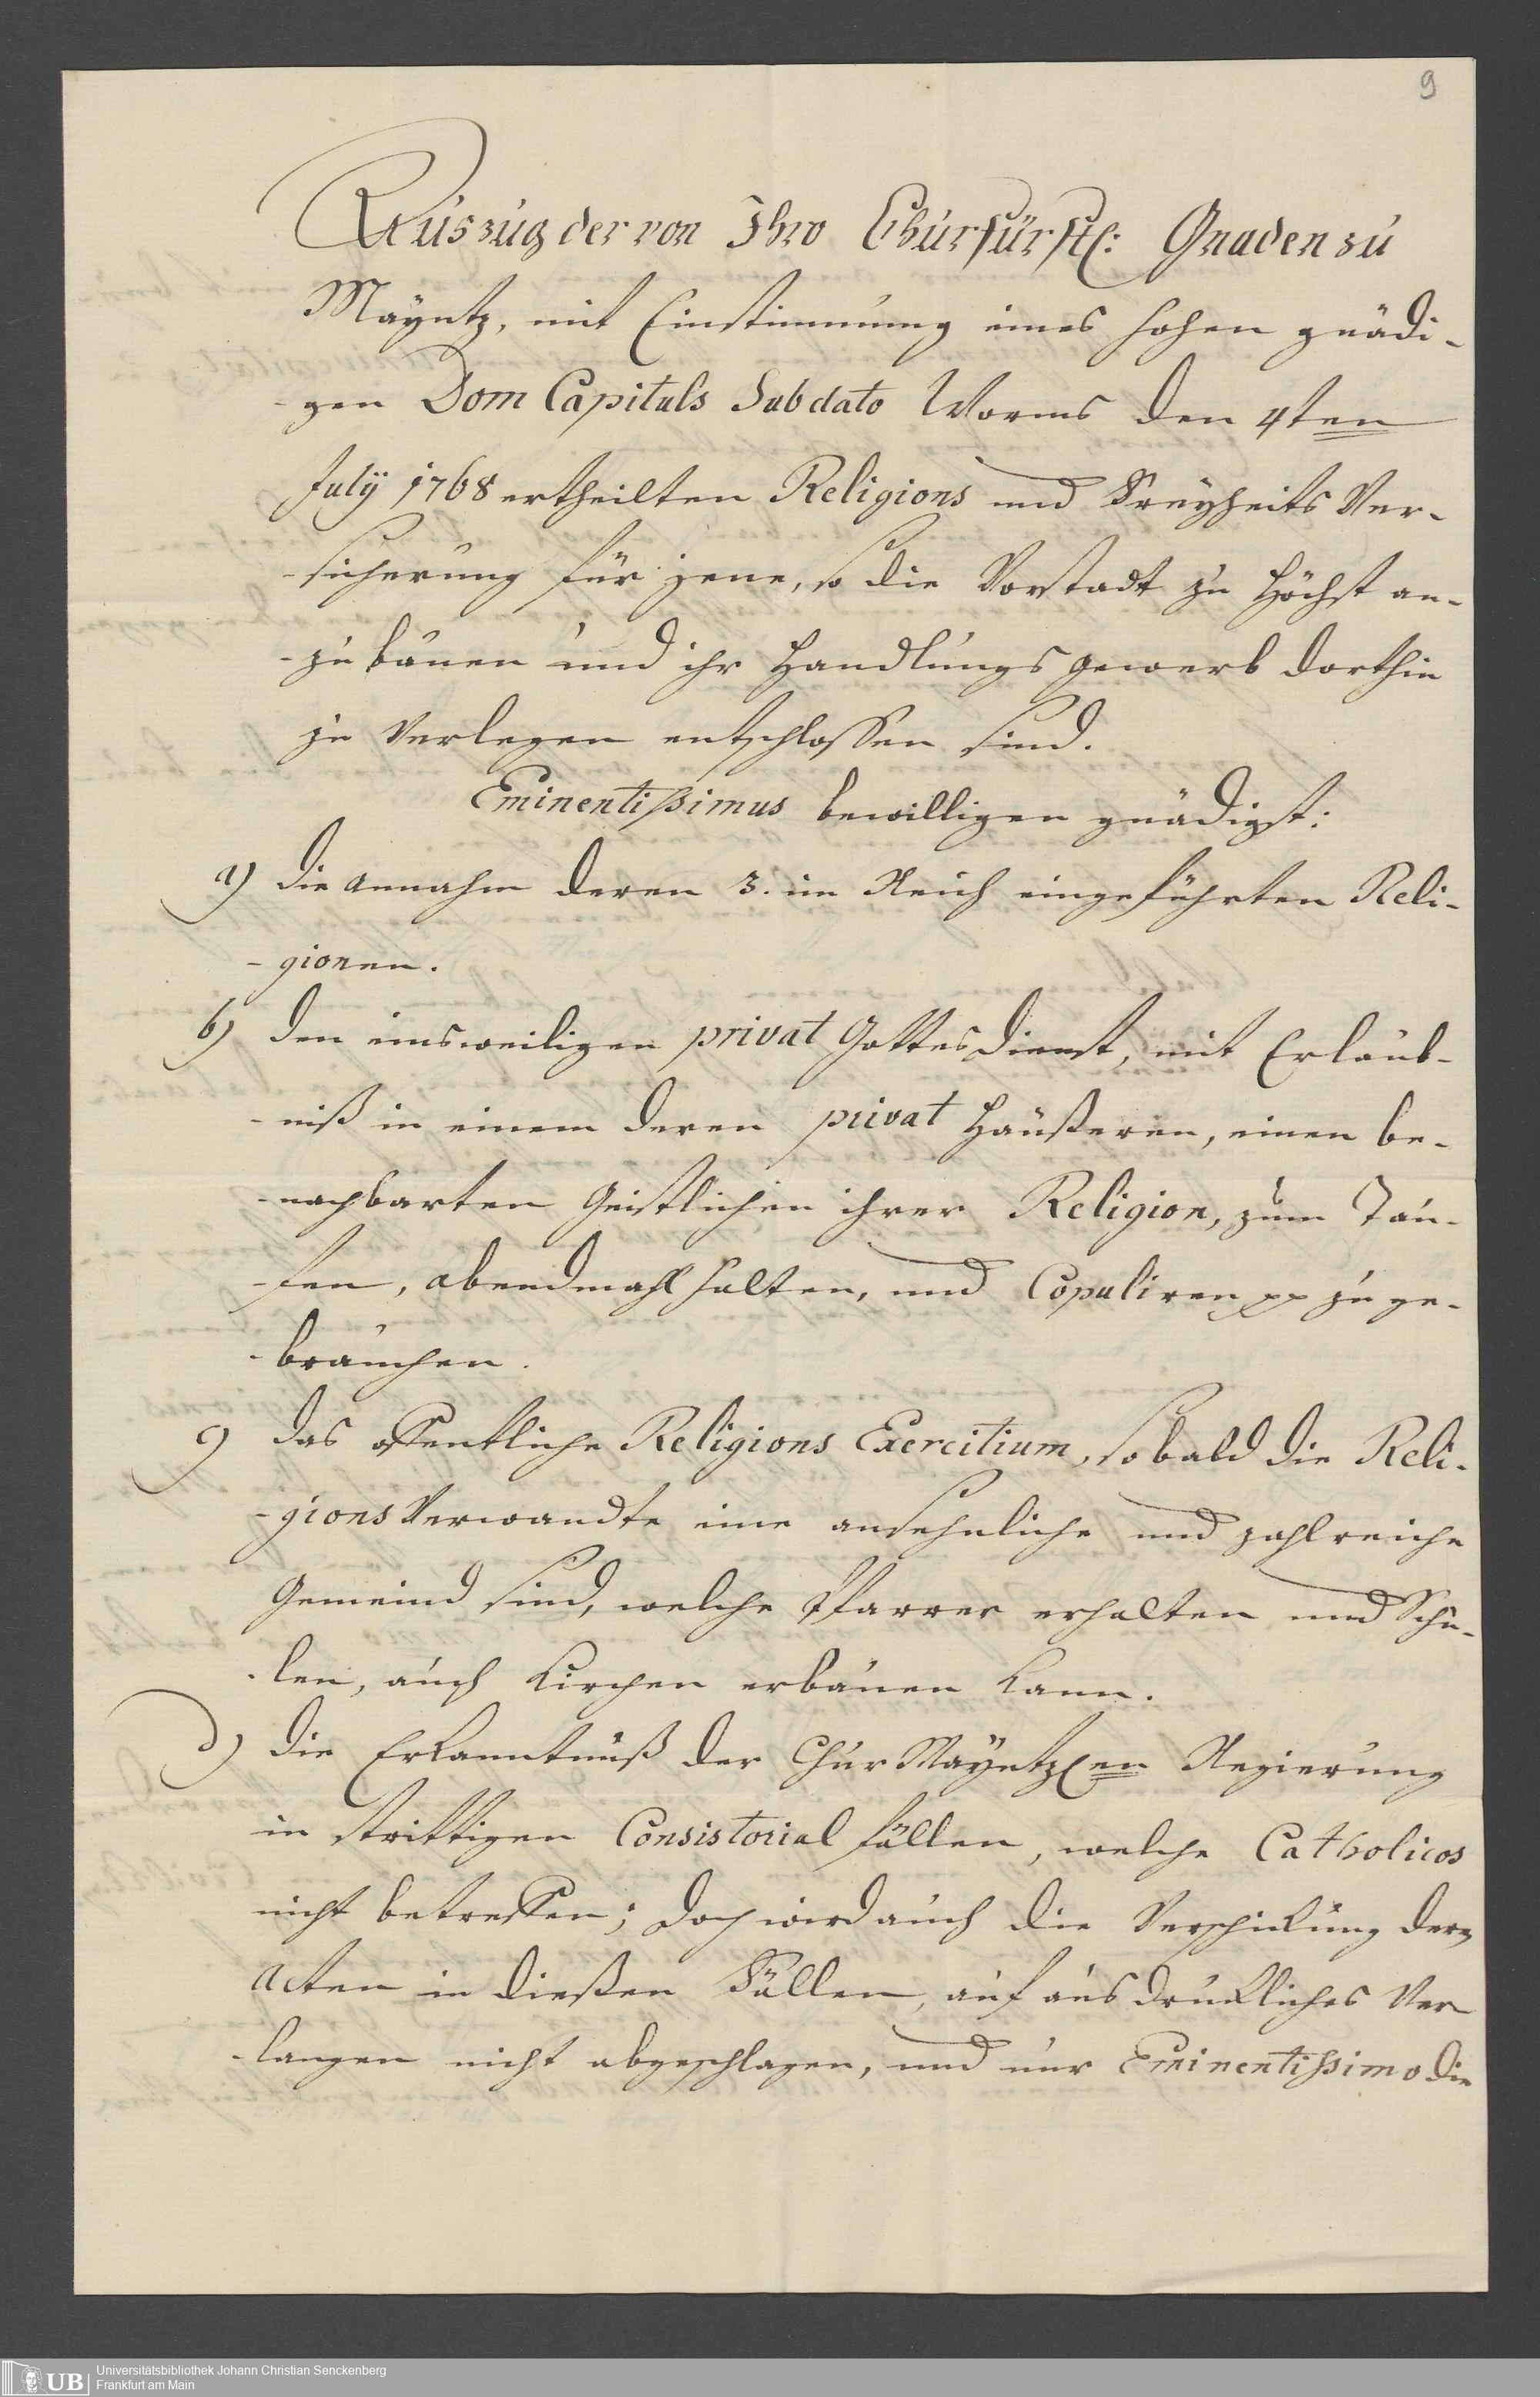 9
Auszug der von Ihro Churfürstl: Gnaden zu
Mäyntz, mit Einstimmung eines hohen gnädi-
-gen Dom Capituls Sub dato Worms den 4ten
July 1768 ertheilten Religions und Freyheits Ver-
-sicherung für jene, so die Vorstadt zu Höchst an-
-zubauen und ihr Handlungs gewerb dorthin
zu Verlegen entschlossen sind.
Eminentißimus bewilligen gnädigst:
a) die annahm deren 3. im Reich eingeführten Reli-
-gionen.
b) den einsweiligen privat Gottesdienst, mit Erlaub-
-niß in einem deren privat Häußeren, einen be-
-nachbarten Geistlichen ihrer Religion, zum Tau-
-fen, abendmahl halten, und Copuliren pp zu ge-
-brauchen.
c) das offentliche Religions Exercitium, so bald die Reli-
-gions Verwandte eine ansehnliche und zahlreiche
Gemeind sind, welche Pfarrer erhalten und Schu-
-len, auch Kirchen erbauen kann.
d) die Erkanntnuß der Chur Mäyntzlen Regierung
in strittigen Consistorial fällen, welche Catholicos
nicht betreffen; doch wird auch die Verschickung der
acten in dießen Fällen, auf ausdrückliches Ver
-langen nicht abgeschlagen, und nur Eminentißimo die
UB
Universitätsbibliothek Johann Christian Senckenberg
Frankfurt am Main